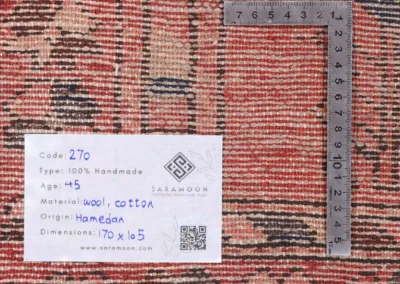 7 6 5 4 3 2 1
1 2 3 4 5 6 7 8 9 10 1 2 3 4 5
Code: 270
Type: 100% Handmade
Age: 45
Material: wool, cotton
Origin: Hamedan
Dimensions: 170 x 105
SARAMOON
www.saramoon.com